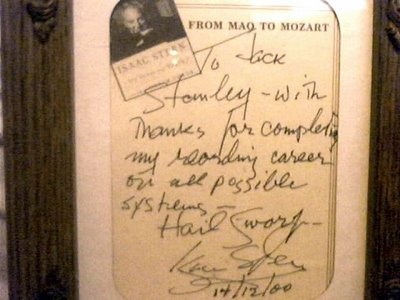 FROM MAO TO MOZART
ISAAC STERN
To Jack
Stanley - with
Thanks for completing
my recording career
on all possible
systems -
Hail
14/12/00